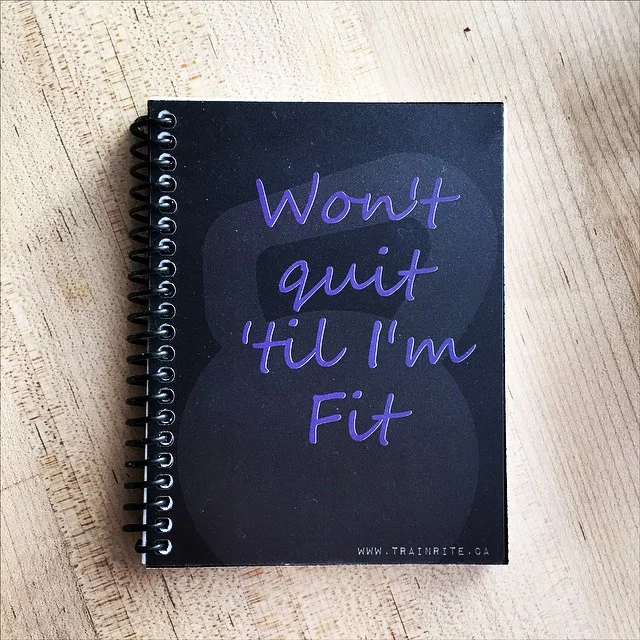 Won't
quit
'til I'm
Fit
WWW.TRAINRITE.CA